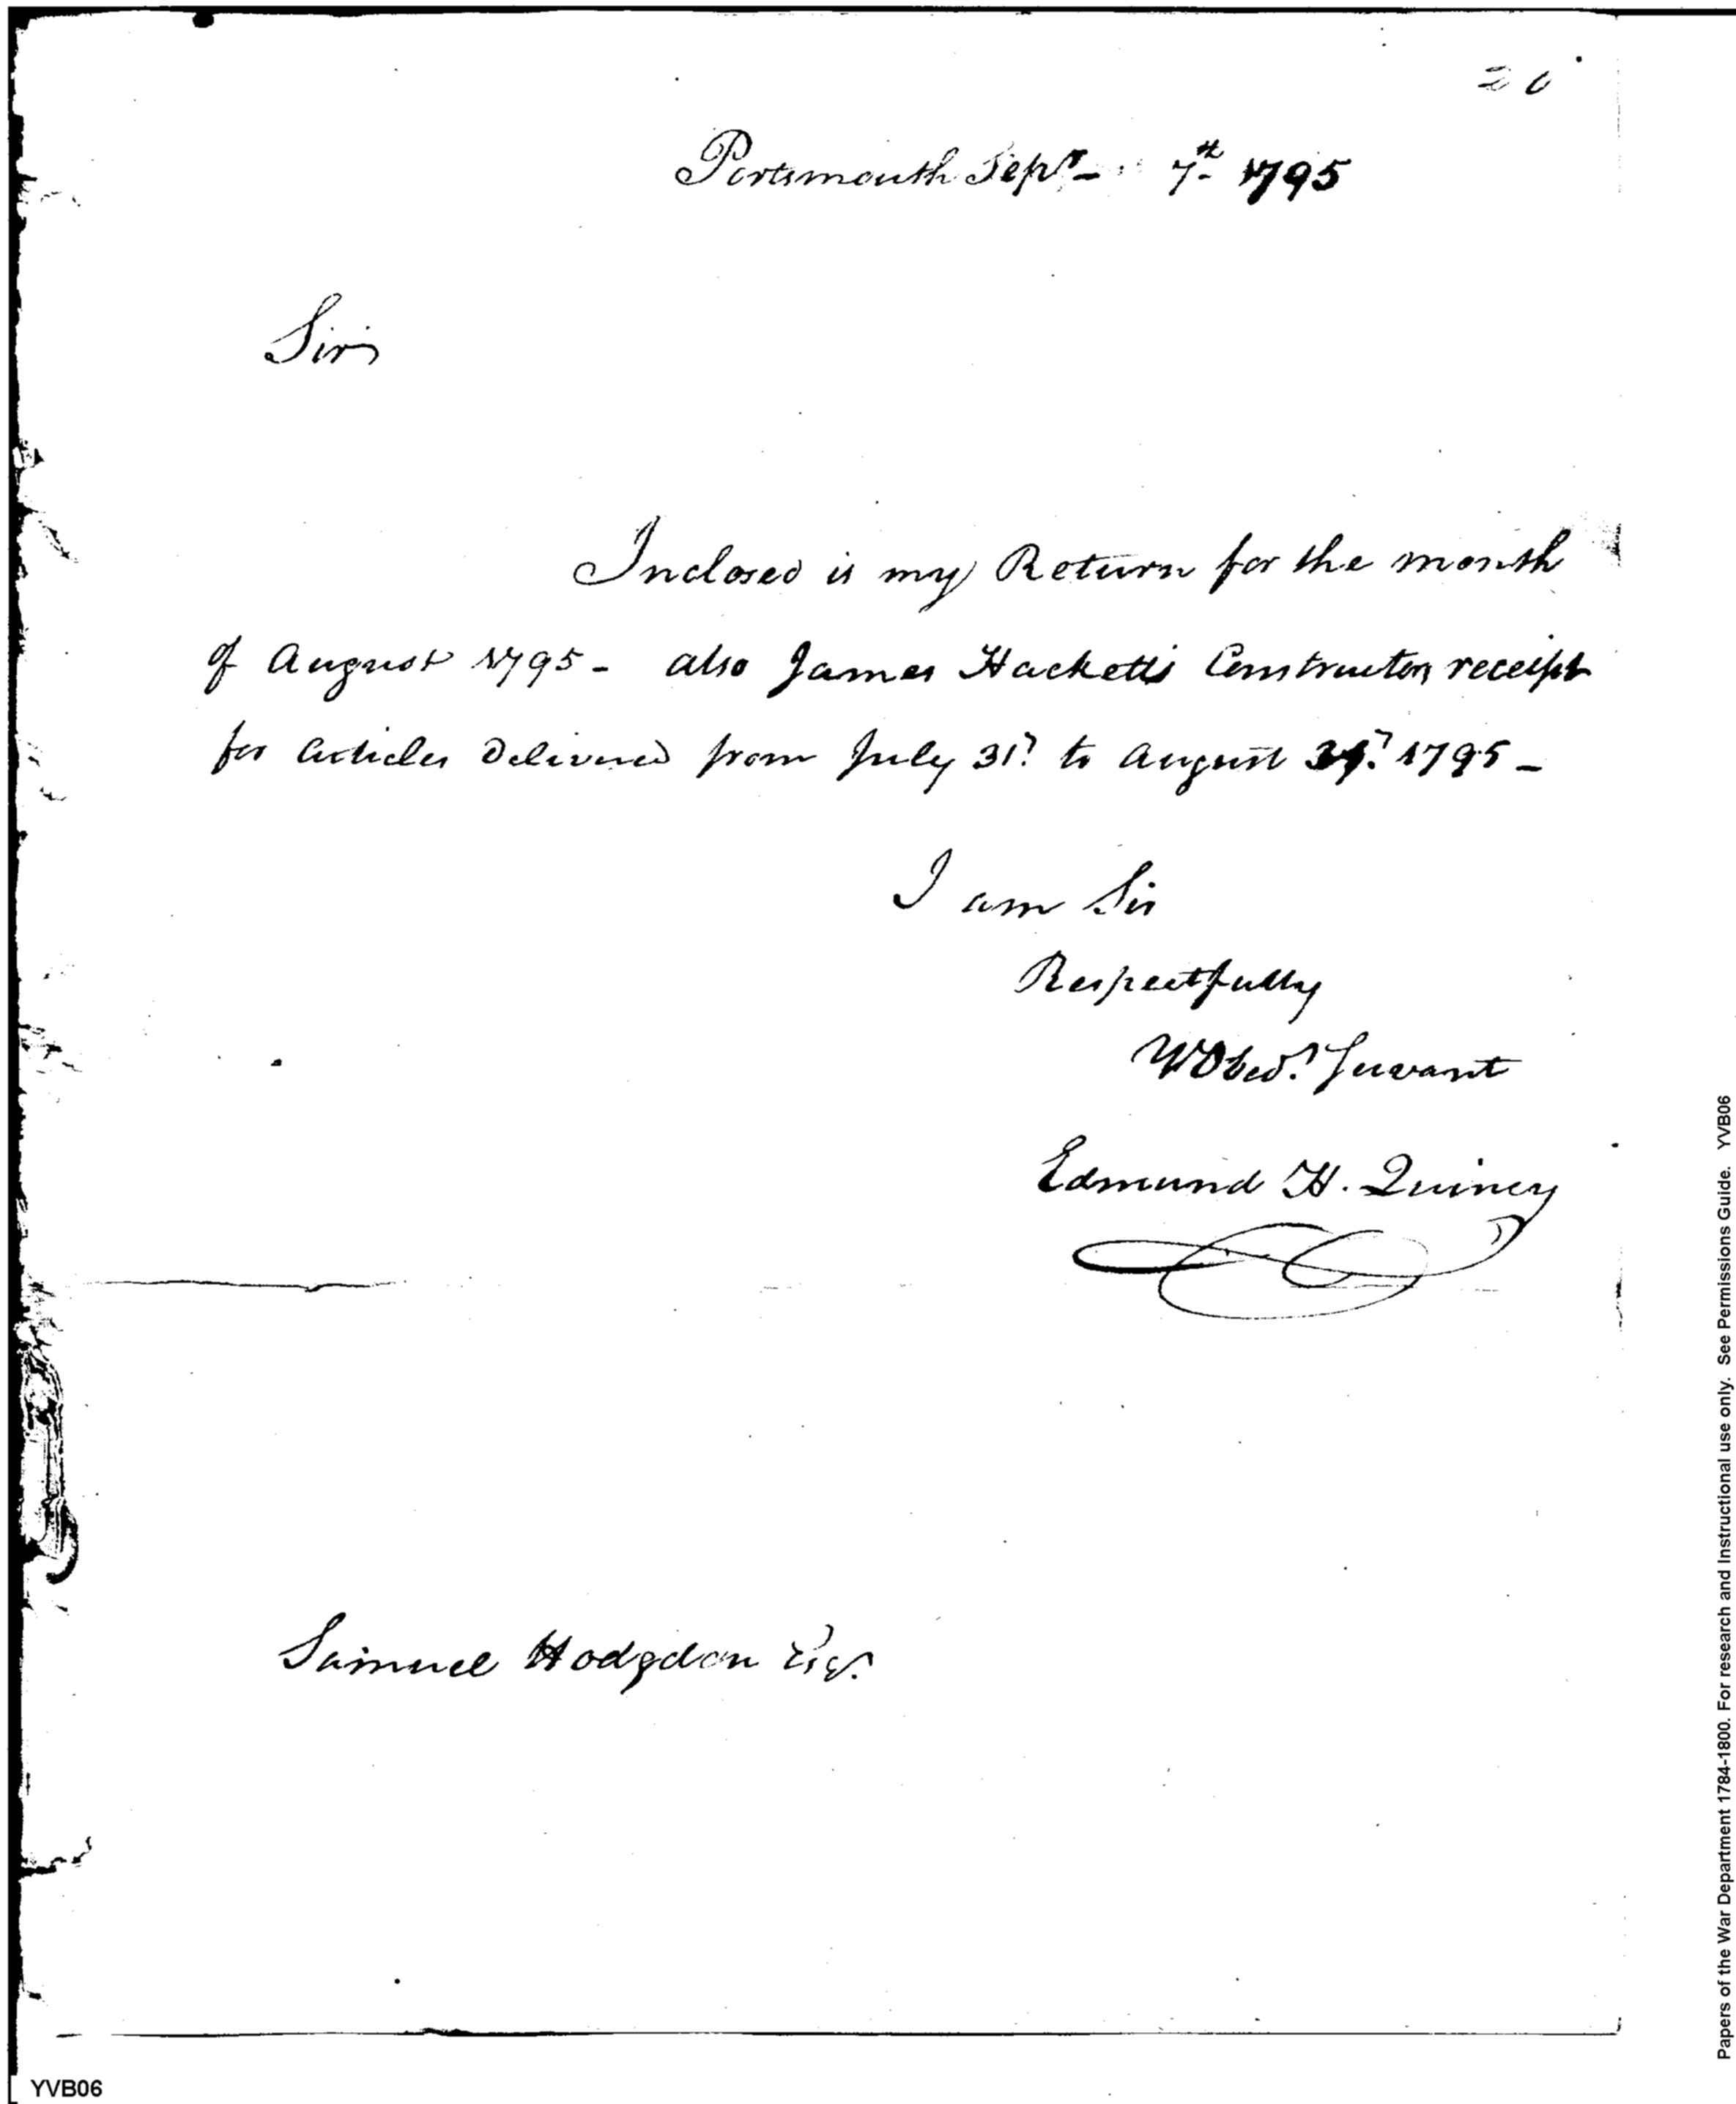 20
Portsmouth Sepr - 7th 1795
Sir
Inclosed is my Return for the month
of August 1795 - also James Hacketts Constructors receipt
for Articles Delivered from July 31? to August 31? 1795 -
I am Sir
Respectfully
Yr Obed.t Servant
Edmund H. Quincy
Samuel Hodgdon Esqr.
Papers of the War Department 1784-1800. For research and Instructional use only. See Permissions Guide. YVB06
YVB06